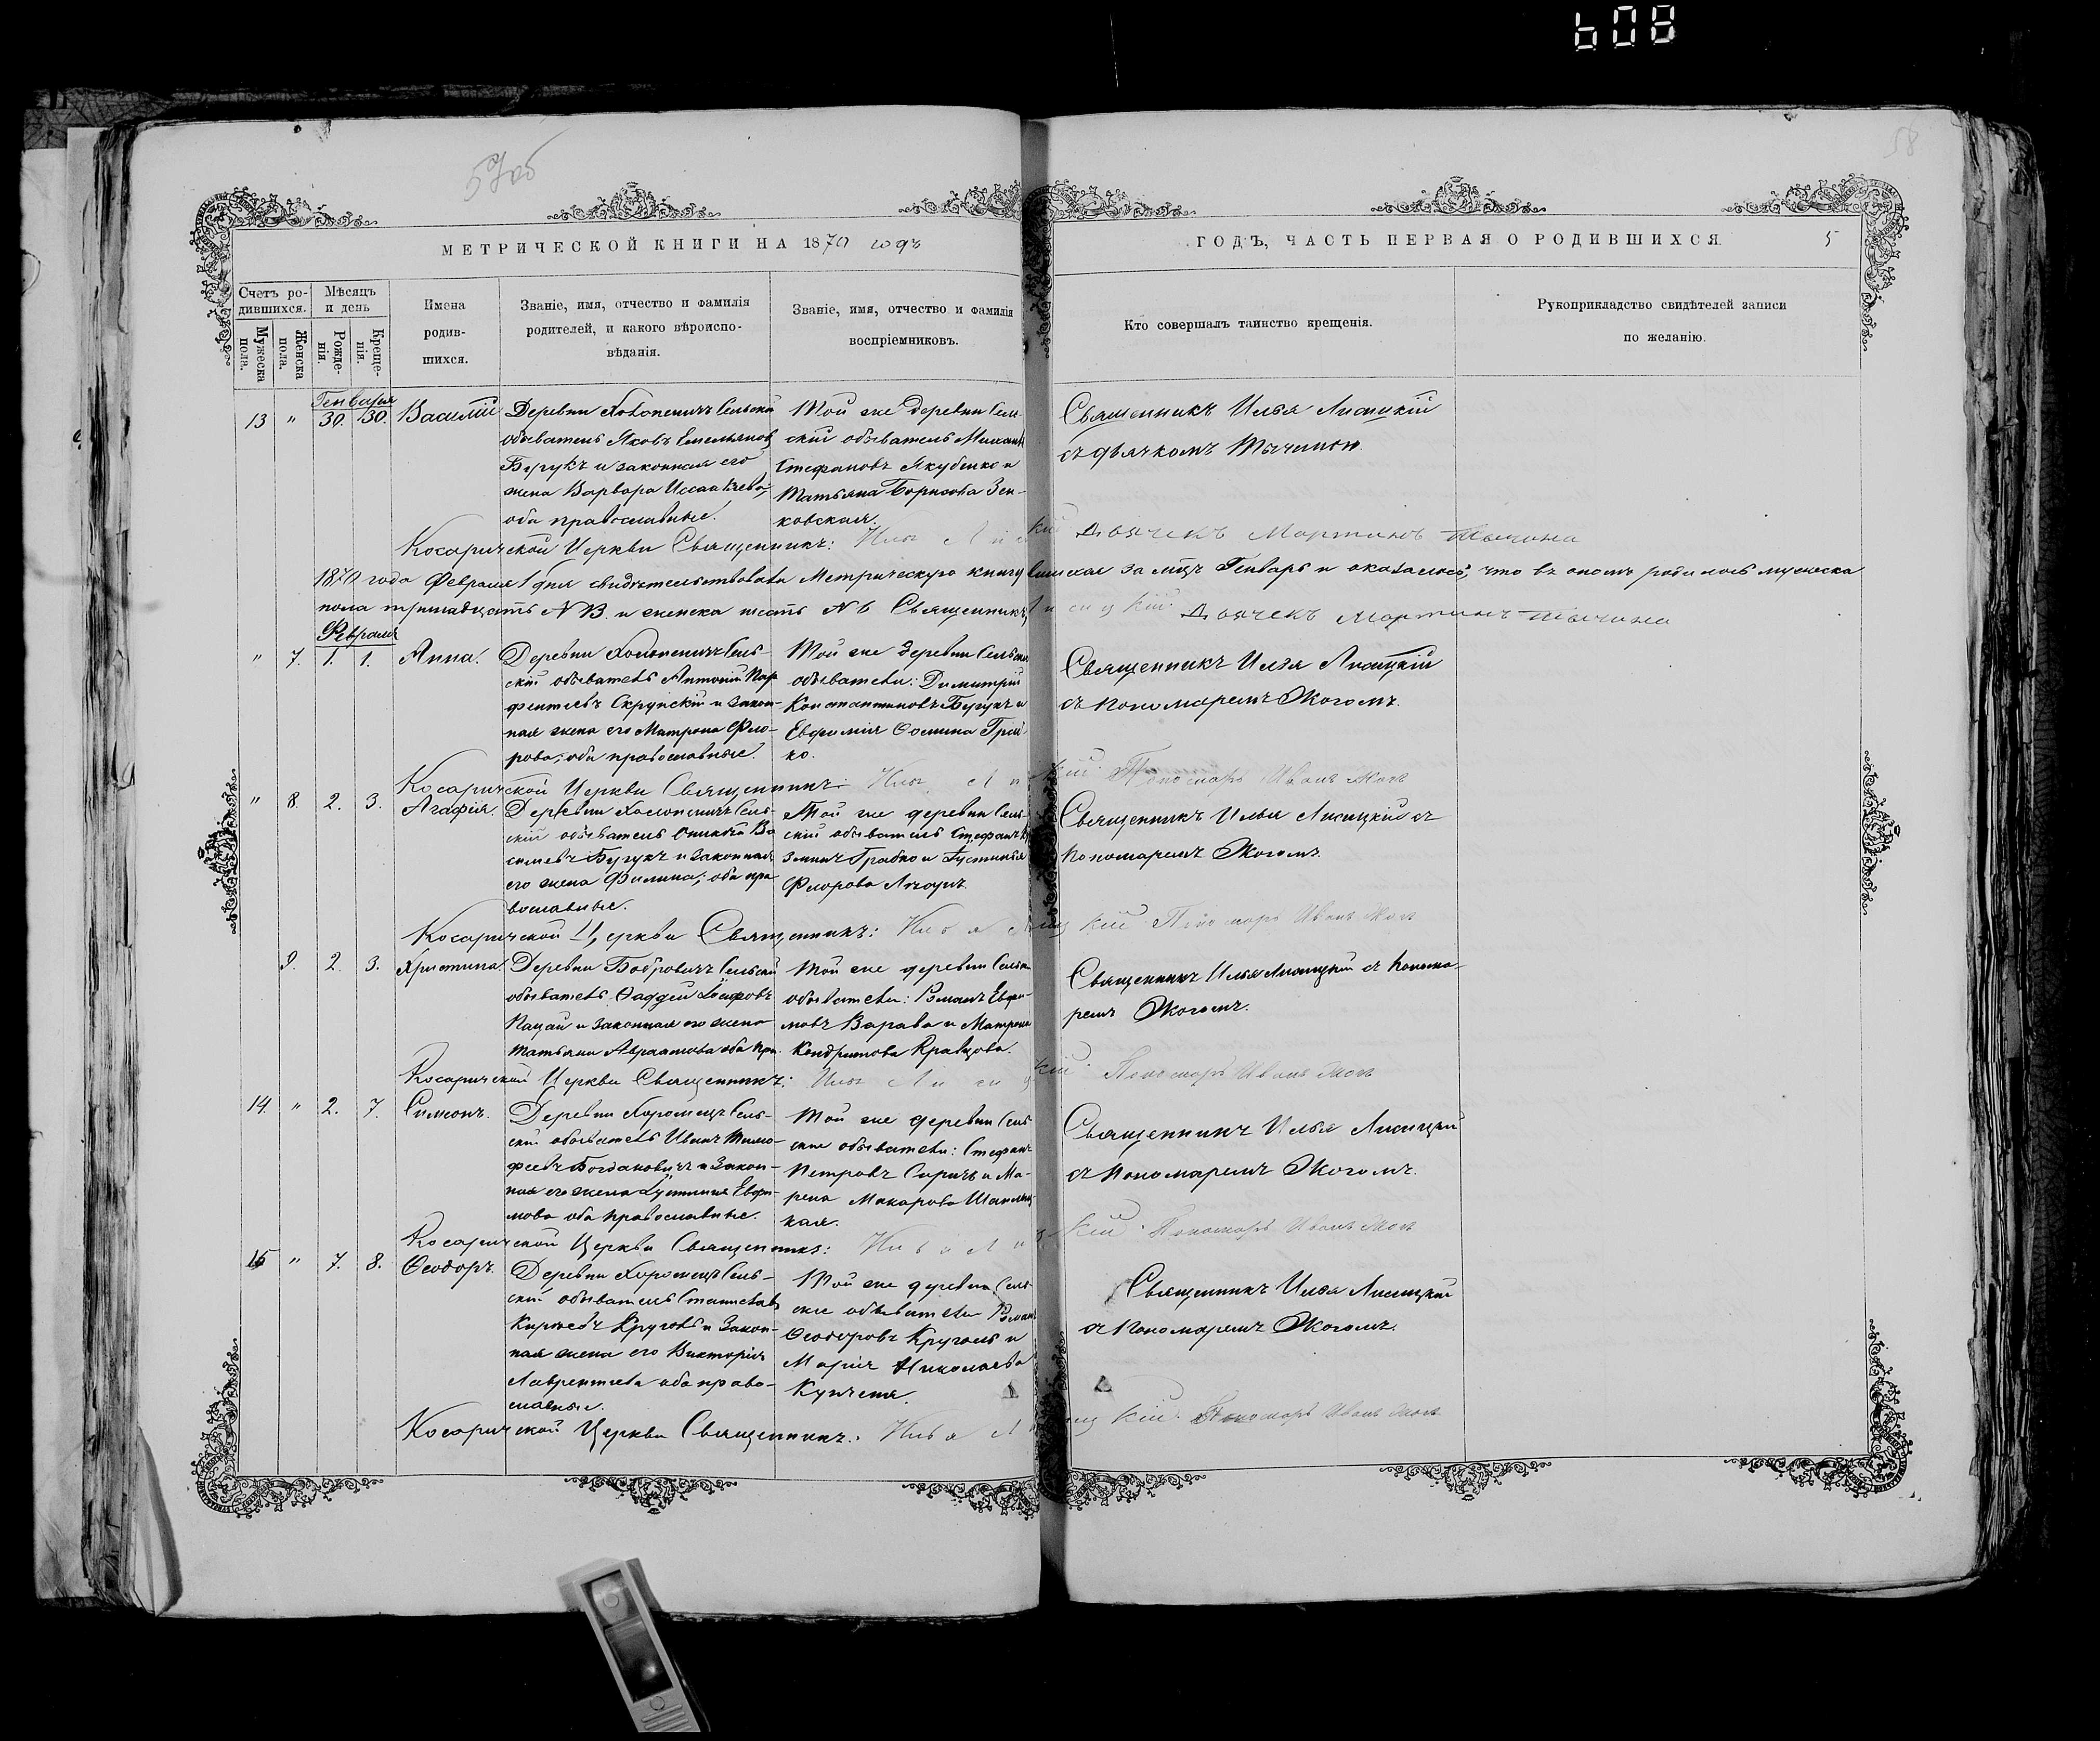 608
57об
58
МЕТРИЧЕСКОЙ КНИГИ НА 1870 годъ
ГОДЪ, ЧАСТЬ ПЕРВАЯ О РОДИВШИХСЯ.
5
Счетъ ро-
дившихся.
Мужеска
пола.
Женска
пола.
Мѣсяцъ
и день
Рожде-
нія.
Креще-
нія.
Имена
родив-
шихся.
Званіе, имя, отчество и фамилія
родителей, и какого вѣроиспо-
вѣданія.
Званіе, имя, отчество и фамилія
воспріемниковъ.
Кто совершалъ таинство крещенія.
Рукоприкладство свидѣтелей записи
по желанію.
Генваря
13 " 30. 30. Василій
Деревни Сельскій
обыватель Яковъ Емельяновъ
Бугукъ и законная его
жена Варвара Исаакіева,
оба православные.
Той же деревни Сель-
скій обыватель
Стефановъ Якубенко и
Татьяна Борисова Зен-
ковская.
Священникъ Илья Лисицкій
съ дьячкомъ Тычиною.
Косаричской Церкви Священникъ: Илья Лисицкій Дьячекъ Мартинъ Тычина
1870 года Февраля 1 дня свидѣтельствовали Метрическую книгу за мцъ Генварь и оказалось, что въ ономъ родилось мужеска
пола тринадцать N 13. и женска шесть N 6 Священникъ Лисицкій Дьячекъ Мартинъ Тычина
Февраля
" 7. 1. 1. Анна.
Деревни Холопеничъ Сель-
скій обыватель Антоній Пар-
фентіевъ Скрунскій и закон-
ная жена его Матрона Фло-
рова, оба православные.
Той же деревни Сельскіе
обыватели: Димитрій
Константиновъ Бугукъ и
Евфимія Ѳомина Грій-
ко.
Священникъ Илья Лисицкій
съ пономаремъ Жогомъ.
Косаричской Церкви Священникъ: Илья Лисицкій Пономарь Иванъ
" 8. 2. 3. Агафія.
Деревни Холопеничъ Сель-
скій обыватель Ва-
сильевъ Бугукъ и законная
его жена Филипа; оба пра-
вославные.
Той же деревни Сель-
скій обыватель Стефанъ
Грабко и Густинія
Флорова
Священникъ Илья Лисицкій съ
пономаремъ Жогомъ.
Косаричской Церкви Священникъ: Илья Лисицкій Пономарь Иванъ
9. 2. 3. Христина.
Деревни Бобровичъ Сельскій
обыватель Ѳаддей Іосифовъ
Пацай и законная его жена
Татьяна Авраамова оба пра.
Той же деревни Сельскіе
обыватели: Романъ Евфи-
мовъ Варава и Матрона
Кондратова Кравцова.
Священникъ Илья Лисицкій съ понома-
ремъ Жогомъ.
Косаричской Церкви Священникъ: Илья Лисицкій Пономарь Иванъ
14. " 2. 7. Симеонъ.
Деревни Хоромецъ Сель-
скій обыватель Иванъ Тимо-
феевъ Богдановичъ и закон-
ная его жена Іустинія Евфи-
мова оба православные.
Той же деревни Сель-
скіе обыватели: Стефанъ
Петровъ Сиричъ и Ма-
рена Макарова
кая.
Священникъ Илья Лисицкій
съ пономаремъ Жогомъ.
Косаричской Церкви Священникъ: Илья Лисицкій Пономарь Иванъ
15 " 7. 8. Ѳеодоръ.
Деревни Хоромецъ Сель-
скій обыватель Станиславъ
Карпеевъ Круговъ и закон-
ная жена его Викторія
Лаврентіева оба право-
славные.
Той же деревни Сель-
скіе обыватели Романъ
Ѳеодоровъ Круголь и
Марія Николаева
Купченя.
Священникъ Илья Лисицкій
съ пономаремъ Жогомъ.
Косаричской Церкви Священникъ: Илья Лисицкій Пономарь Иванъ